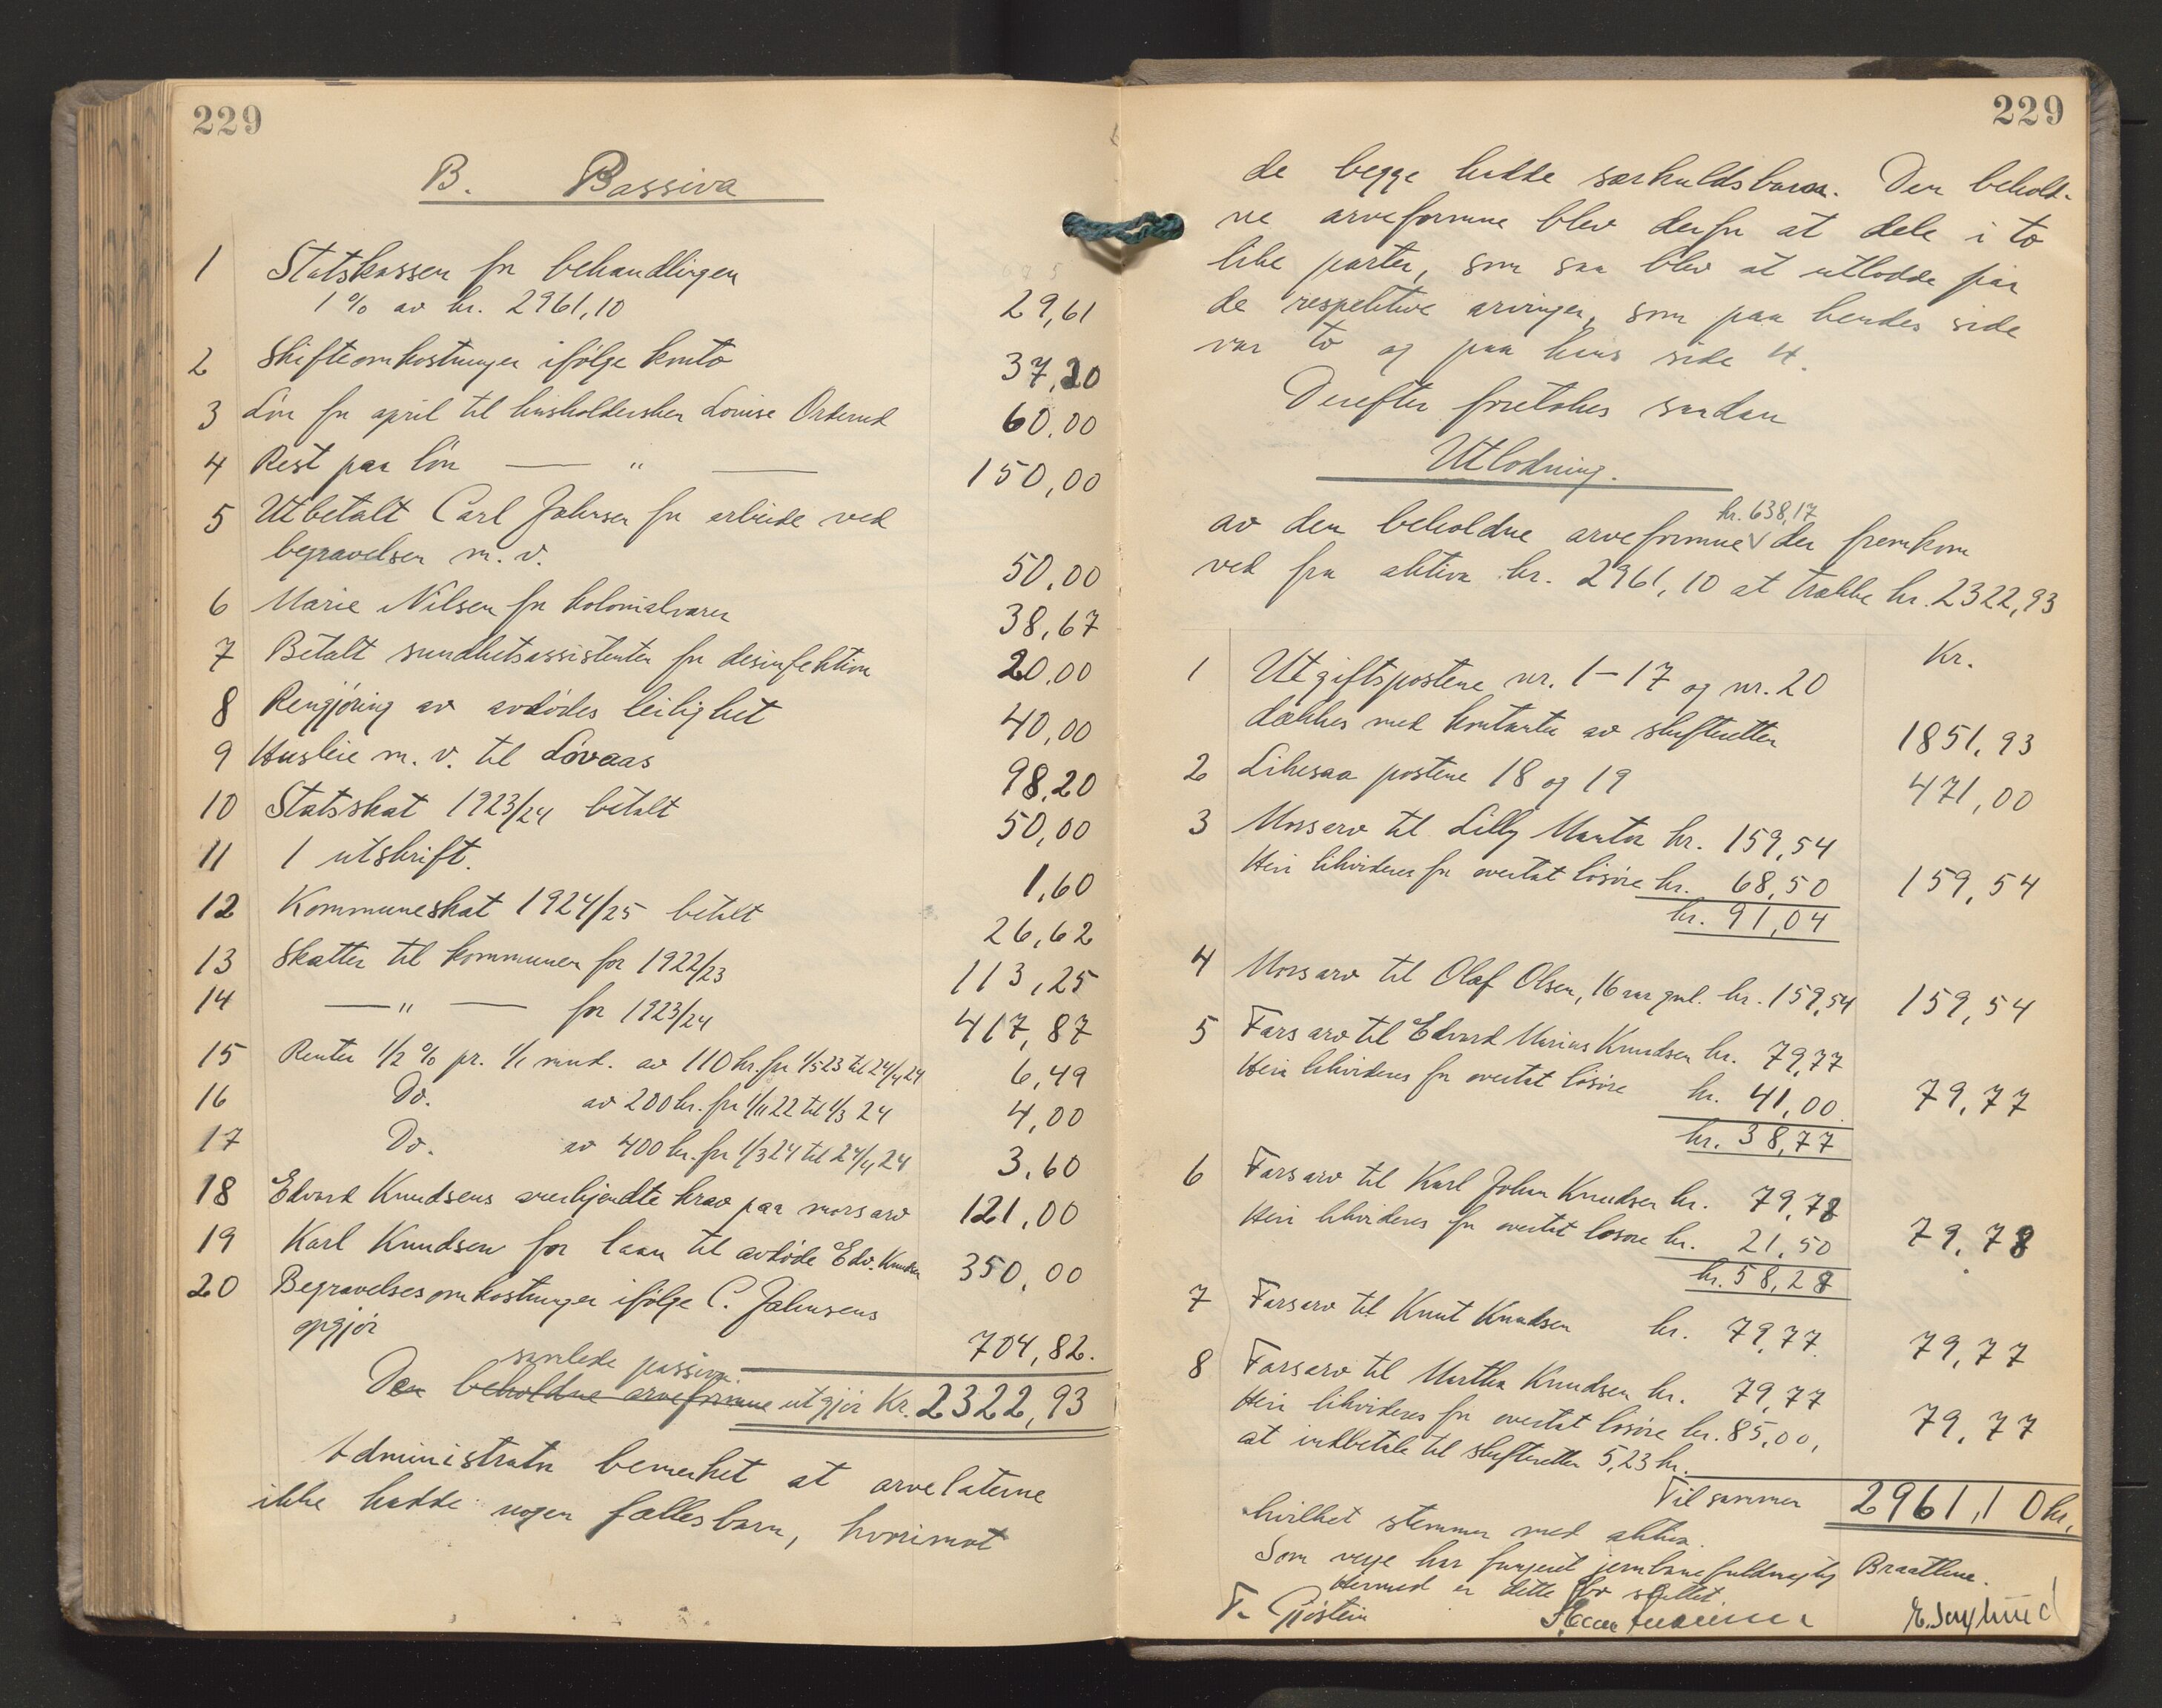 229
B. Passiva
1 Statskassen for behandlingen
1 % av kr. 2961,10 29,61
2 Skifteomkostninger ifølge konto 37,20
3 Løn for april til husholdersken Louise Orderud 60,00
4 Rest paa løn — " — 150,00
5 Utbetalt Carl Johnsen for arbeide ved
begravelsen m.v. 50,00
6 Marie Nilsen for kolonialvarer 38,67
7 Betalt sundhetsassistenten for desinfektion 20,00
8 Rengjøring av avdødes leilighet 40,00
9 Husleie m.v. til Løvaas 98,20
10 Statsskat 1923/24 betalt 50,00
11 1 utskrift. 1,60
12 Kommuneskat 1924/25 betalt 26,62
13 Skatter til kommunen for 1922/23 113,25
14 — " — for 1923/24 417,87
15 Renter 1/2 % pr. 1/1 mnd. av 110 kr. fra 1/5 23 til 24/4 24 6,49
16 Do. av 200 kr. fra 1/11 22 til 1/3 24 4,00
17 Do. av 400 kr. fra 1/3 24 til 24/4 24 3,60
18 Edvard Knudsens anerkjendte krav paa morsarv 121,00
19 Karl Knudsen for laan til avdøde Edv. Knudsen 350,00
20 Begravelsesomkostninger ifølge C. Johnsens
opgjør 704,82.
samlede passiva
Den beholdne arveformue utgjør Kr. 2322,93
Administrator bemerket at arvelaterne
ikke hadde nogen fællesbarn, hvorimot
229
de begge hadde særkuldsbarn. Den behold-
ne arveformue blev derfor at dele i to
like parter, som saa blev at utlodde paa
de respektive arvinger, som paa hendes side
var to og paa hans side 4.
Derefter foretokes saadan
Utlodning.
kr. 638,17
av den beholdne arveformue V der fremkom
ved fra aktiva kr. 2961,10 at trække kr. 2322,93
Kr.
1 Utgiftspostene nr. 1–17 og nr. 20
dækkes med kontanter av skifteretten 1851,93
2 Likesaa postene 18 og 19 471,00
3 Morsarv til Lilly Martin kr. 159,54
Heri likvideres for overtat løsøre kr. 68,50 159,54
kr. 91,04
4 Morsarv til Olaf Olsen, 16 aar gml. kr. 159,54 159,54
5 Farsarv til Edvard Marius Knudsen kr. 79,77
Heri likvideres for overtat løsøre kr. 41,00 79,77
kr. 38,77
6 Farsarv til Karl Johan Knudsen kr. 79,78
Heri likvideres for overtat løsøre kr. 21,50 79,78
kr. 58,28
7 Farsarv til Knut Knudsen kr. 79,77 79,77
8 Farsarv til Martha Knudsen kr. 79,77
Heri likvideres for overtat løsøre kr. 85,00, 79,77
at indbetale til skifteretten 5,23 kr.
Tilsammen 2961,10 kr.
hvilket stemmer med aktiva.
Som verge har fungert jernbanefuldmægtig Braathene.
Hermed er dette bo sluttet.
F. Gjøstein